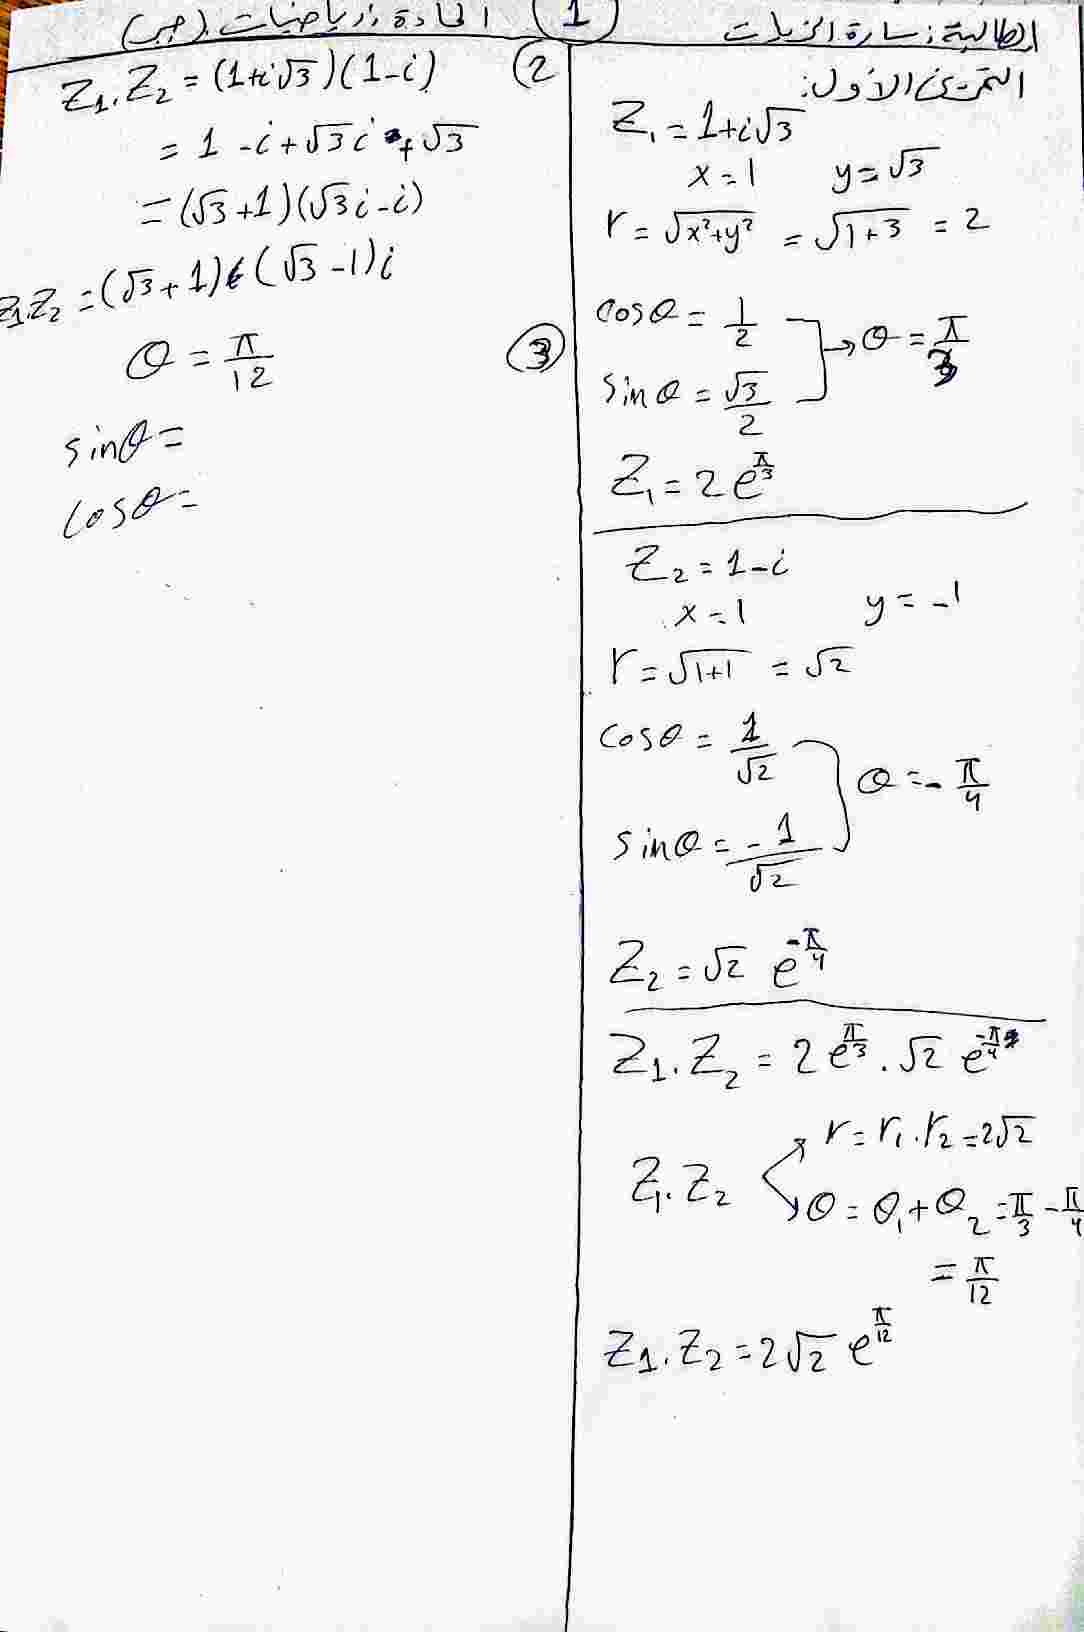 الطالبة: سارة الزيات
1
المادة: رياضيات (جبر)
التمرين الأول:
Z₁ = 1+i√3
x = 1 y = √3
r = √x²+y² = √1+3 = 2
cosθ = 1/2
sinθ = √3/2
→ θ = π/3
Z₁ = 2 e^π/3
Z₂ = 1-i
x = 1 y = -1
r = √1+1 = √2
cosθ = 1/√2
sinθ = -1/√2
θ = -π/4
Z₂ = √2 e^-π/4
Z₁.Z₂ = 2 e^π/3 . √2 e^-π/4
r = r₁.r₂ = 2√2
Z₁.Z₂
θ = θ₁+θ₂ = π/3 - π/4
= π/12
Z₁.Z₂ = 2√2 e^π/12
2
Z₁.Z₂ = (1+i√3)(1-i)
= 1 -i +√3 i + √3
= (√3+1)(√3i-i)
Z₁Z₂ = (√3+1)+(√3-1)i
3
θ = π/12
sinθ =
cosθ =